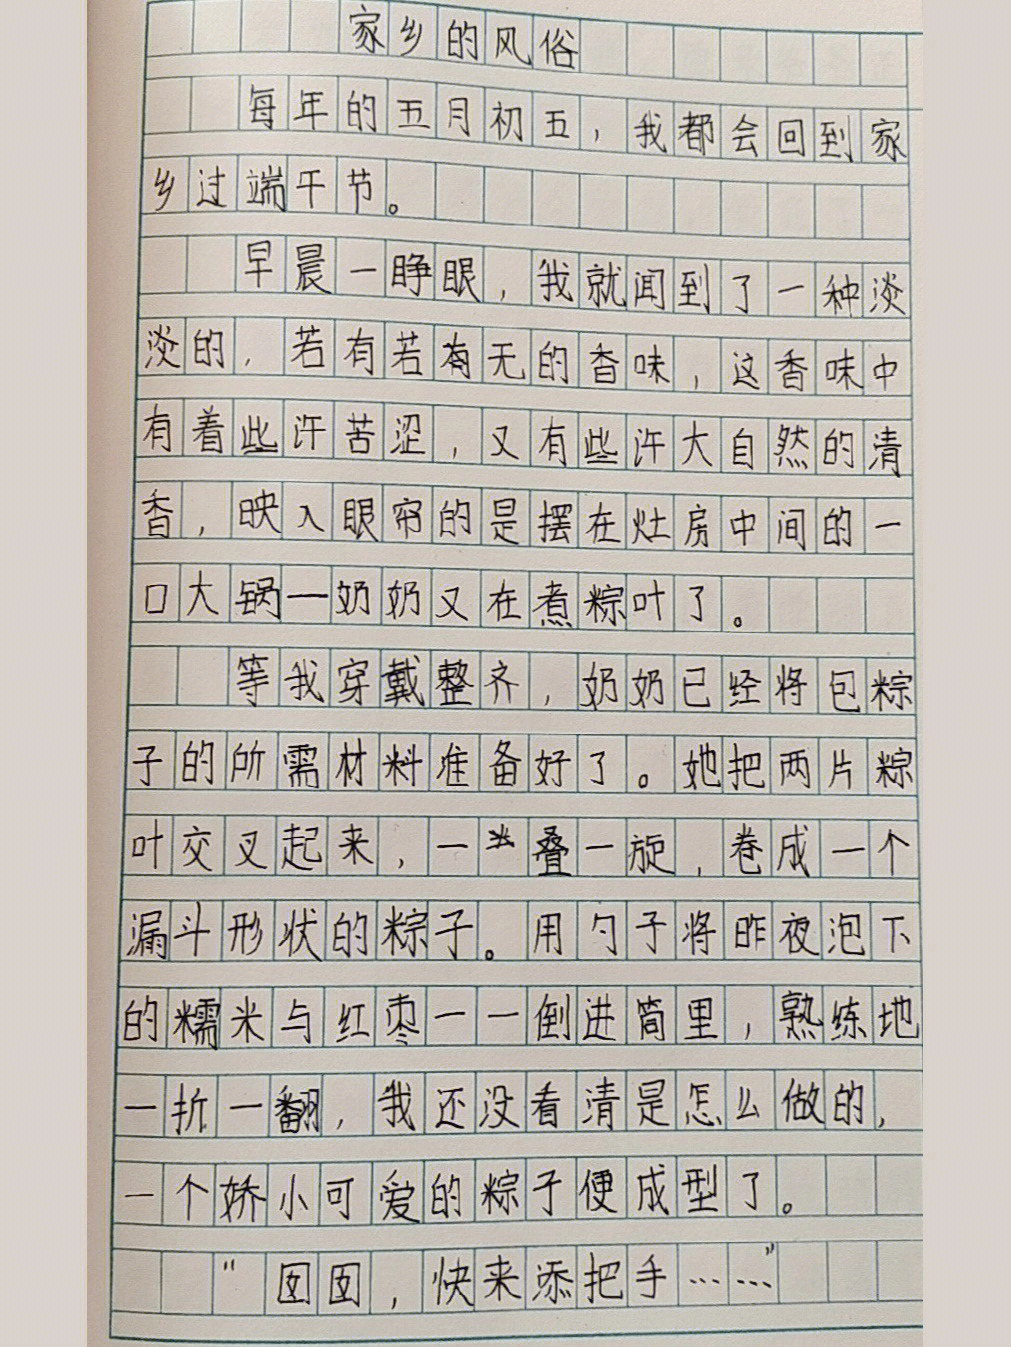 家乡的风俗
每年的五月初五，我都会回到家
乡过端午节。
早晨一睁眼，我就闻到了一种淡
淡的，若有若有无的香味，这香味中
有着些许苦涩，又有些许大自然的清
香，映入眼帘的是摆在灶房中间的一
口大锅—奶奶又在煮粽叶了。
等我穿戴整齐，奶奶已经将包粽
子的所需材料准备好了。她把两片粽
叶交叉起来，一叠一旋，卷成一个
漏斗形状的粽子。用勺子将昨夜泡下
的糯米与红枣一一倒进筒里，熟练地
一折一翻，我还没看清是怎么做的，
一个娇小可爱的粽子便成型了。
“囡囡，快来添把手……”